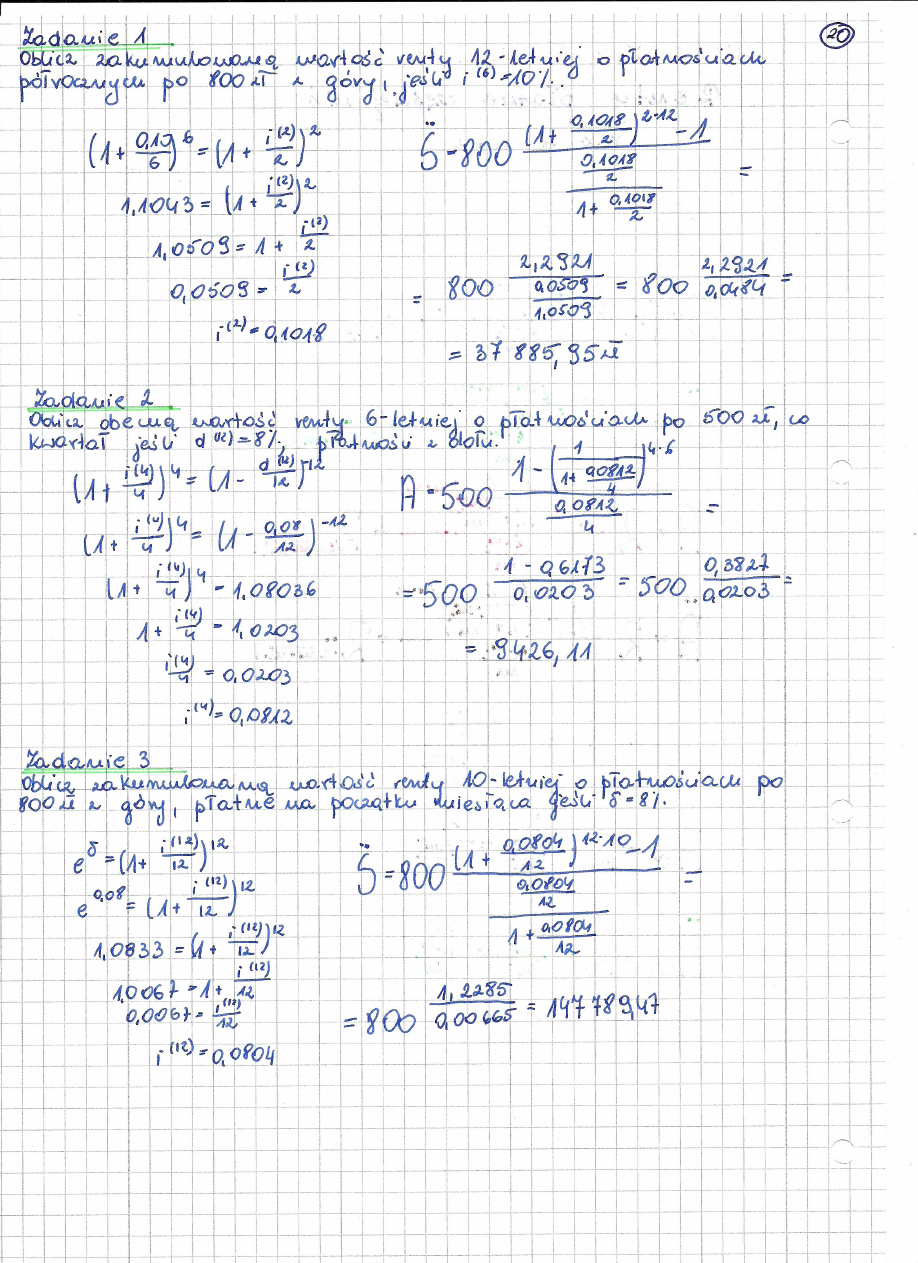 20
Zadanie 1
Oblicz zakumulowaną wartość renty 12-letniej o płatnościach
półrocznych po 800 zł z góry, jeśli i^(6) = 10%.
(1 + 0,10/6)^6 = (1 + i^(2)/2)^2
1,1043 = (1 + i^(2)/2)^2
1,0509 = 1 + i^(2)/2
0,0509 = i^(2)/2
i^(2) = 0,1018
S̈ = 800 ((1 + 0,1018/2)^(2·12) - 1) / ((0,1018/2) / (1 + 0,1018/2)) =
= 800 2,2921 / (0,0509/1,0509) = 800 2,2921/0,0484 =
= 37 885,95 zł
Zadanie 2
Oblicz obecną wartość renty 6-letniej o płatnościach po 500 zł, co
kwartał jeśli d^(12) = 8%, płatności z dołu.
(1 + i^(4)/4)^4 = (1 - d^(12)/12)^-12
(1 + i^(4)/4)^4 = (1 - 0,08/12)^-12
(1 + i^(4)/4)^4 = 1,08036
1 + i^(4)/4 = 1,0203
i^(4)/4 = 0,0203
i^(4) = 0,0812
A = 500 (1 - (1 / (1 + 0,0812/4))^(4·6)) / (0,0812/4) =
= 500 (1 - 0,6173)/0,0203 = 500 0,3827/0,0203 =
= 9426,11
Zadanie 3
Oblicz zakumulowaną wartość renty 10-letniej o płatnościach po
800 zł z góry, płatne na początku miesiąca jeśli δ = 8%.
e^δ = (1 + i^(12)/12)^12
e^0,08 = (1 + i^(12)/12)^12
1,0833 = (1 + i^(12)/12)^12
1,0067 = 1 + i^(12)/12
0,0067 = i^(12)/12
i^(12) = 0,0804
S̈ = 800 ((1 + 0,0804/12)^(12·10) - 1) / ((0,0804/12) / (1 + 0,0804/12)) =
= 800 1,2285/0,00665 = 147789,47